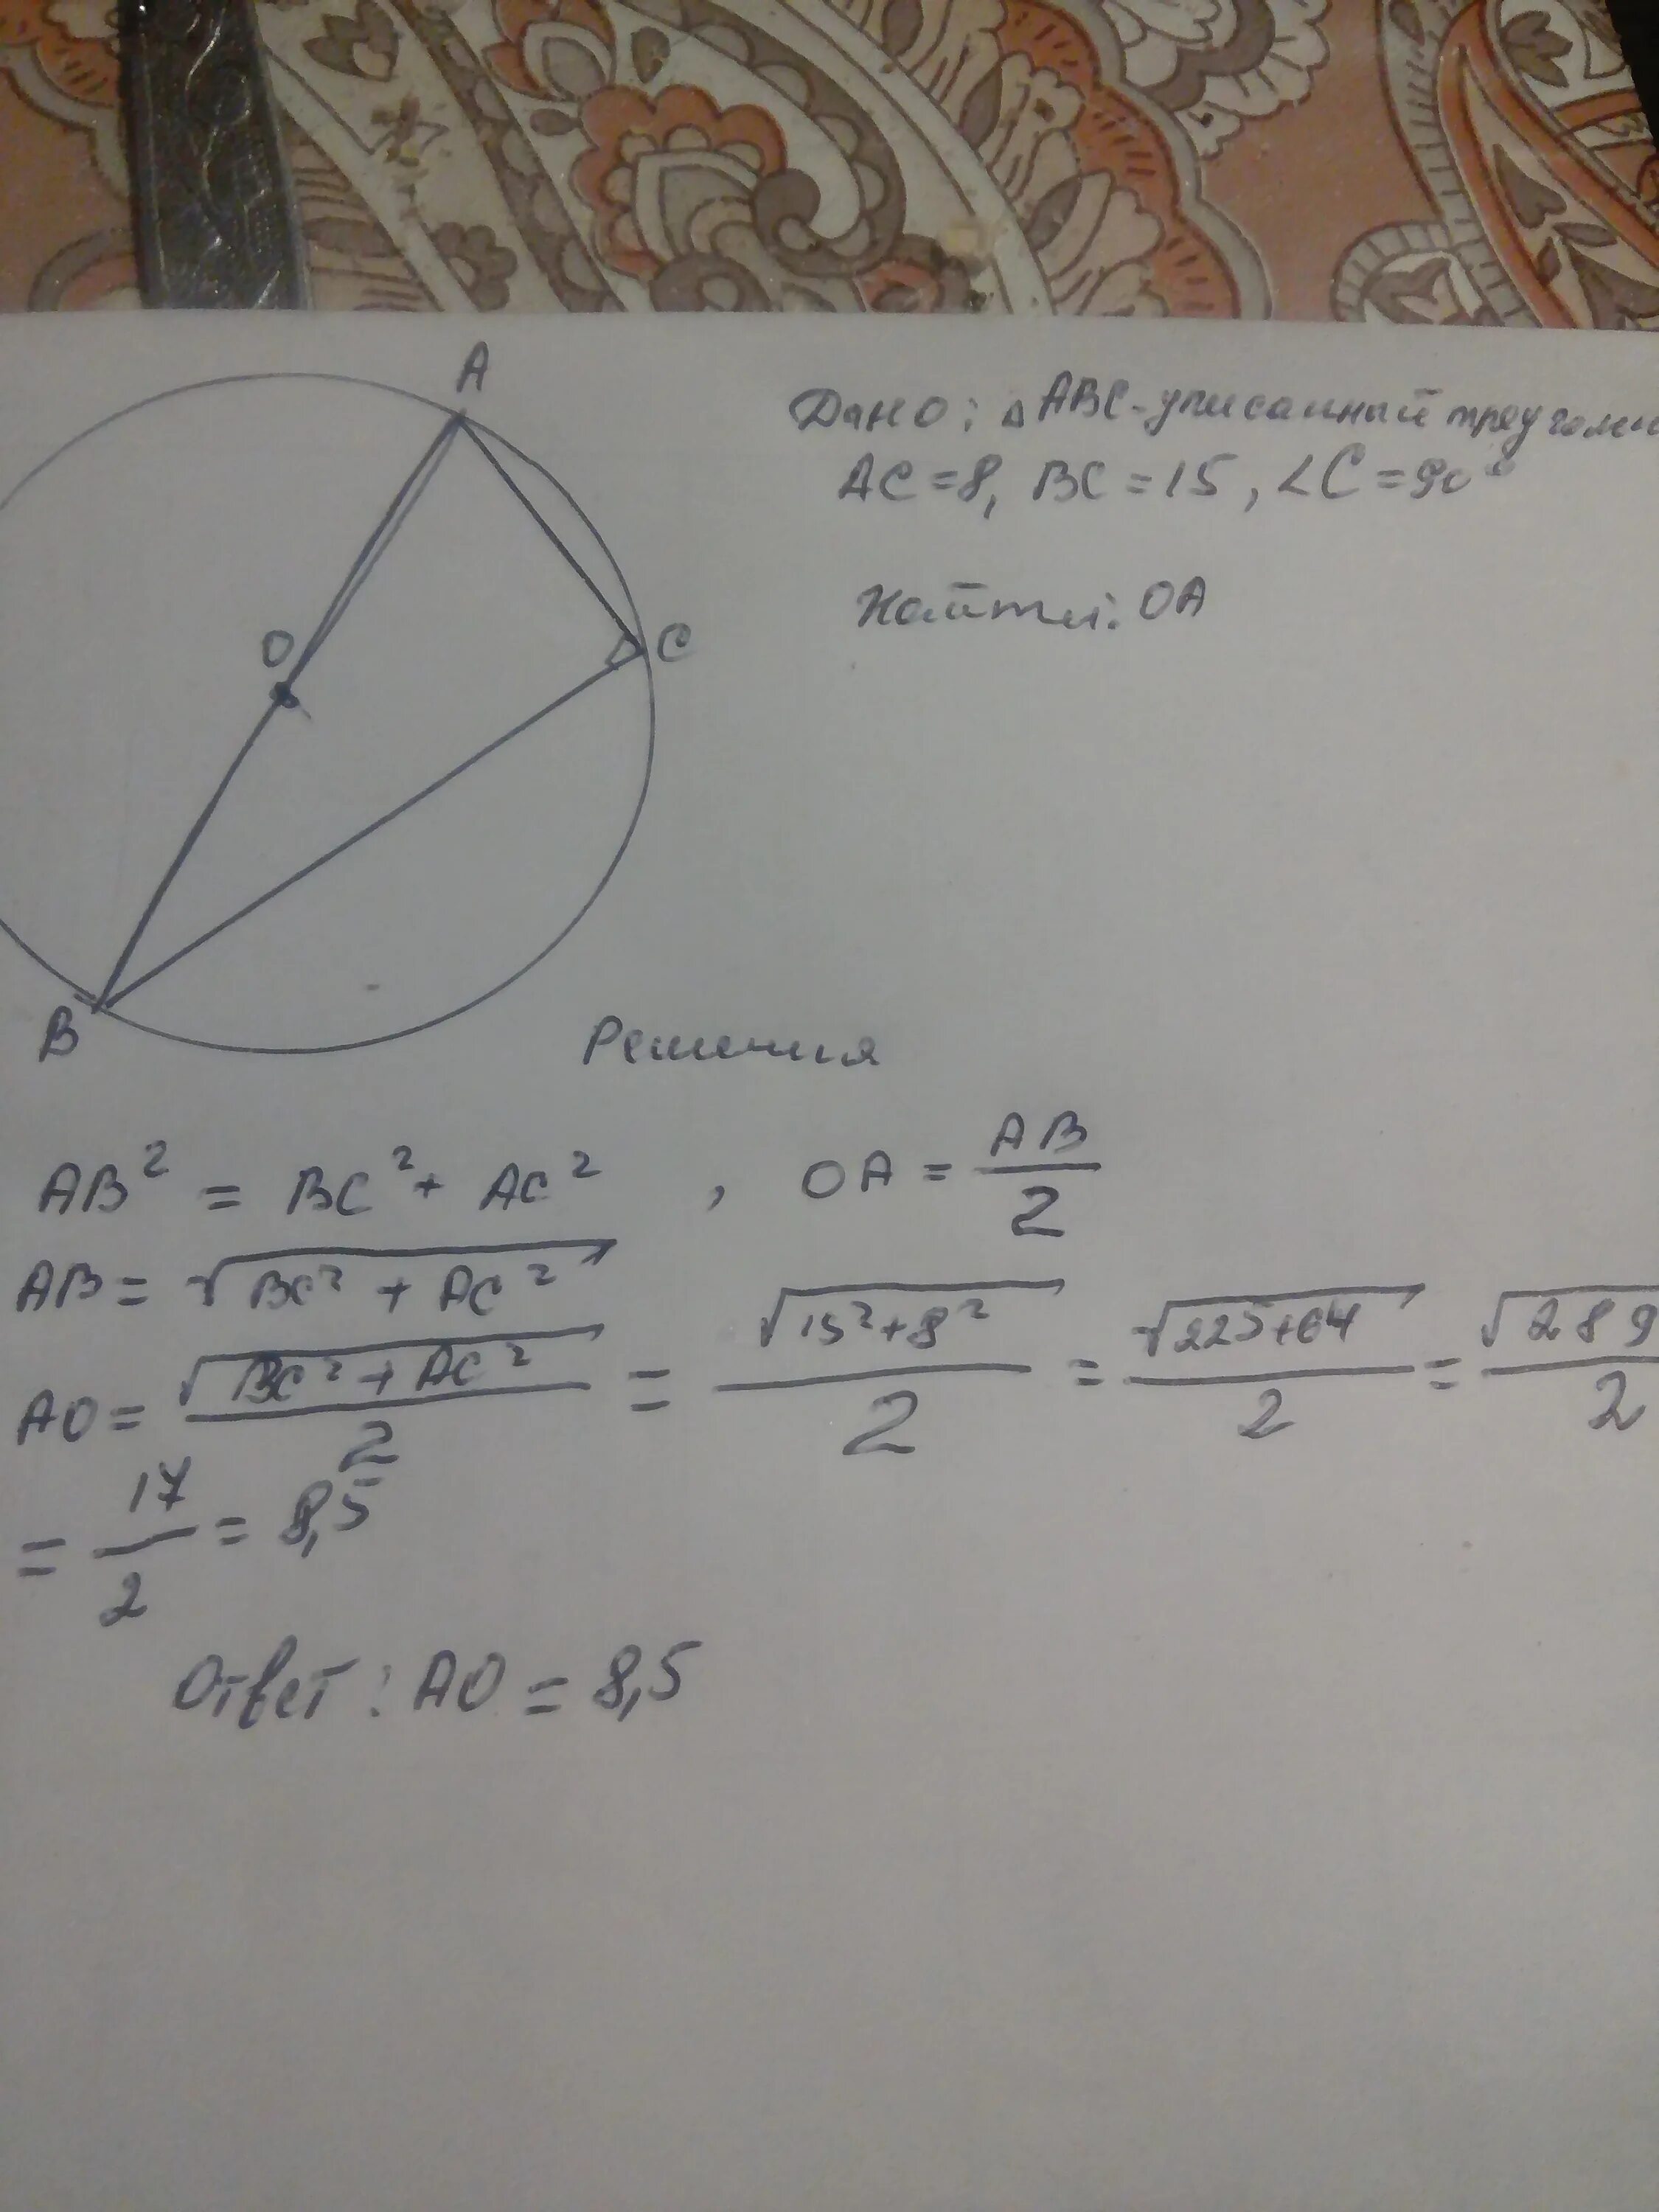 A
Дано: △ABC-уписанный треугольн
AC=8, BC=15, ∠C=90°
Найти: OA
O
C
B
Решения
AB² = BC² + AC² , OA = AB/2
AB = √(BC² + AC²)
AO = √(BC² + AC²)/2 = √(15²+8²)/2 = √(225+64)/2 = √289/2
= 17/2 = 8,5
Ответ: AO = 8,5